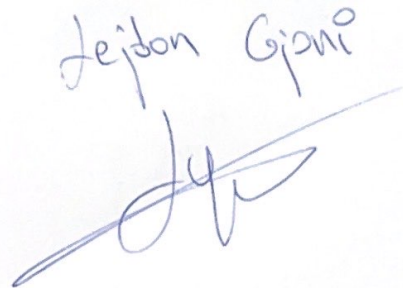 Lejdon Gjoni